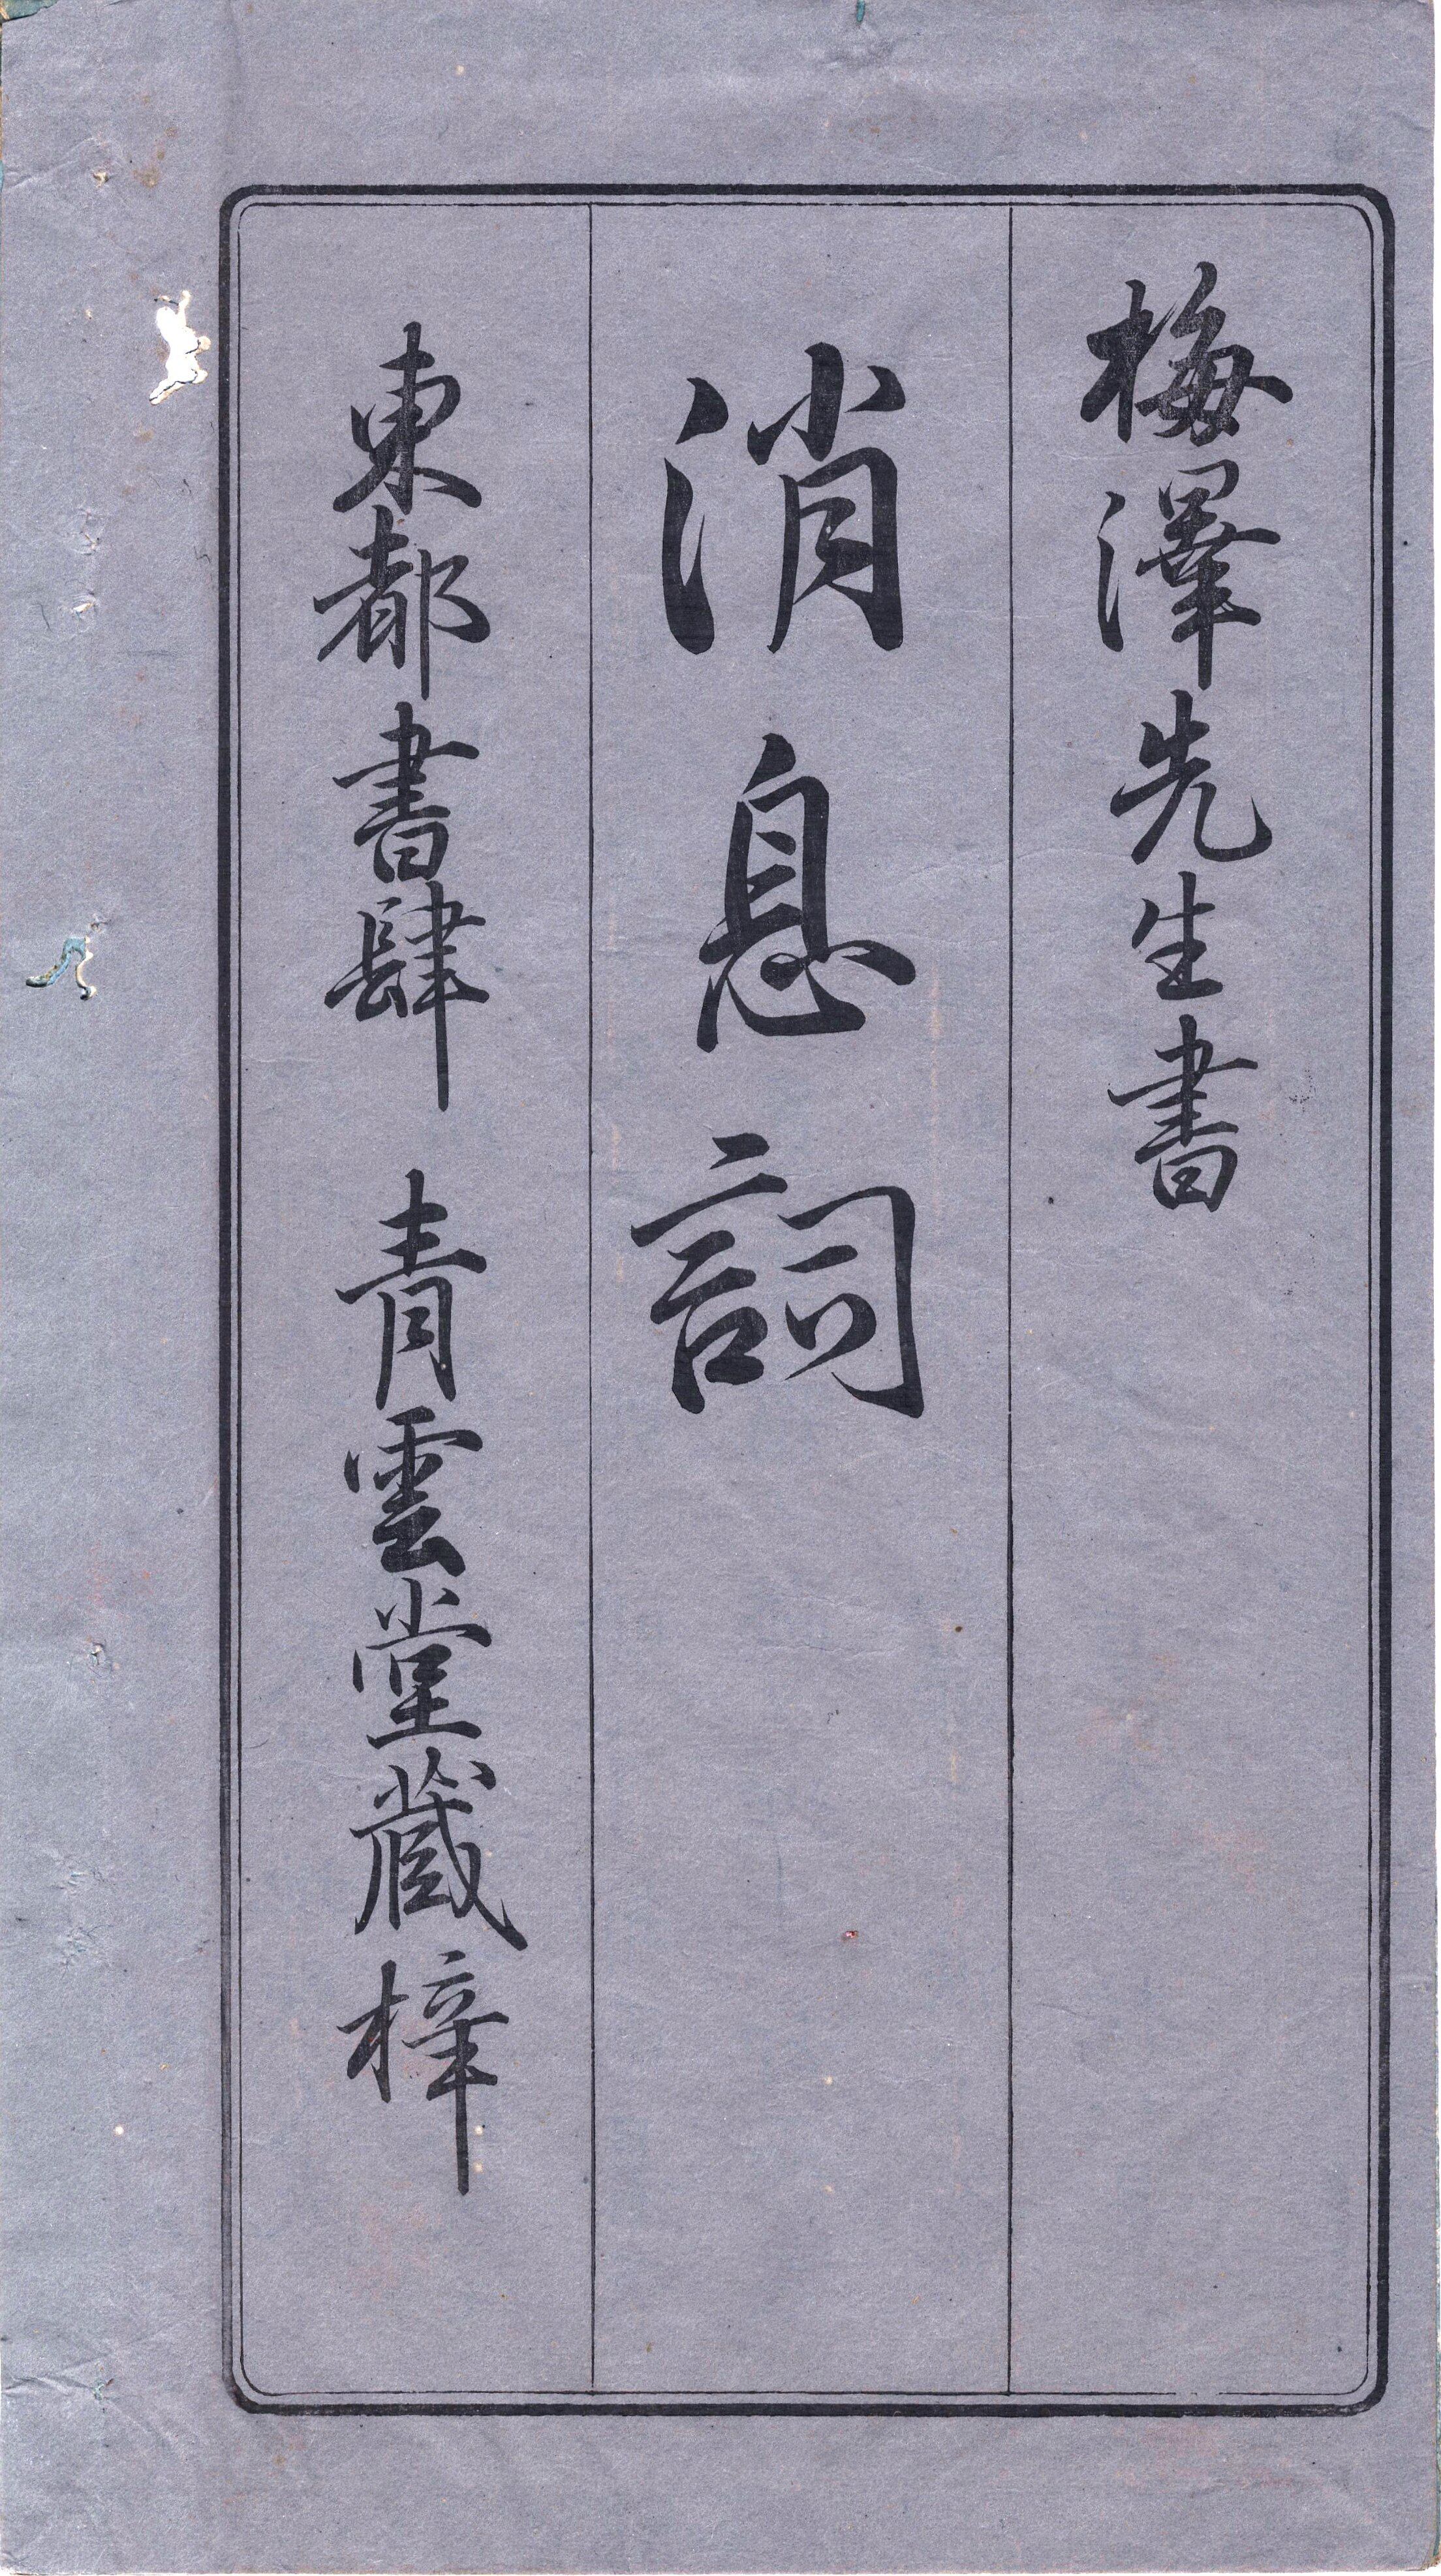 梅澤先生書
消息詞
東都書肆 青雲堂藏梓